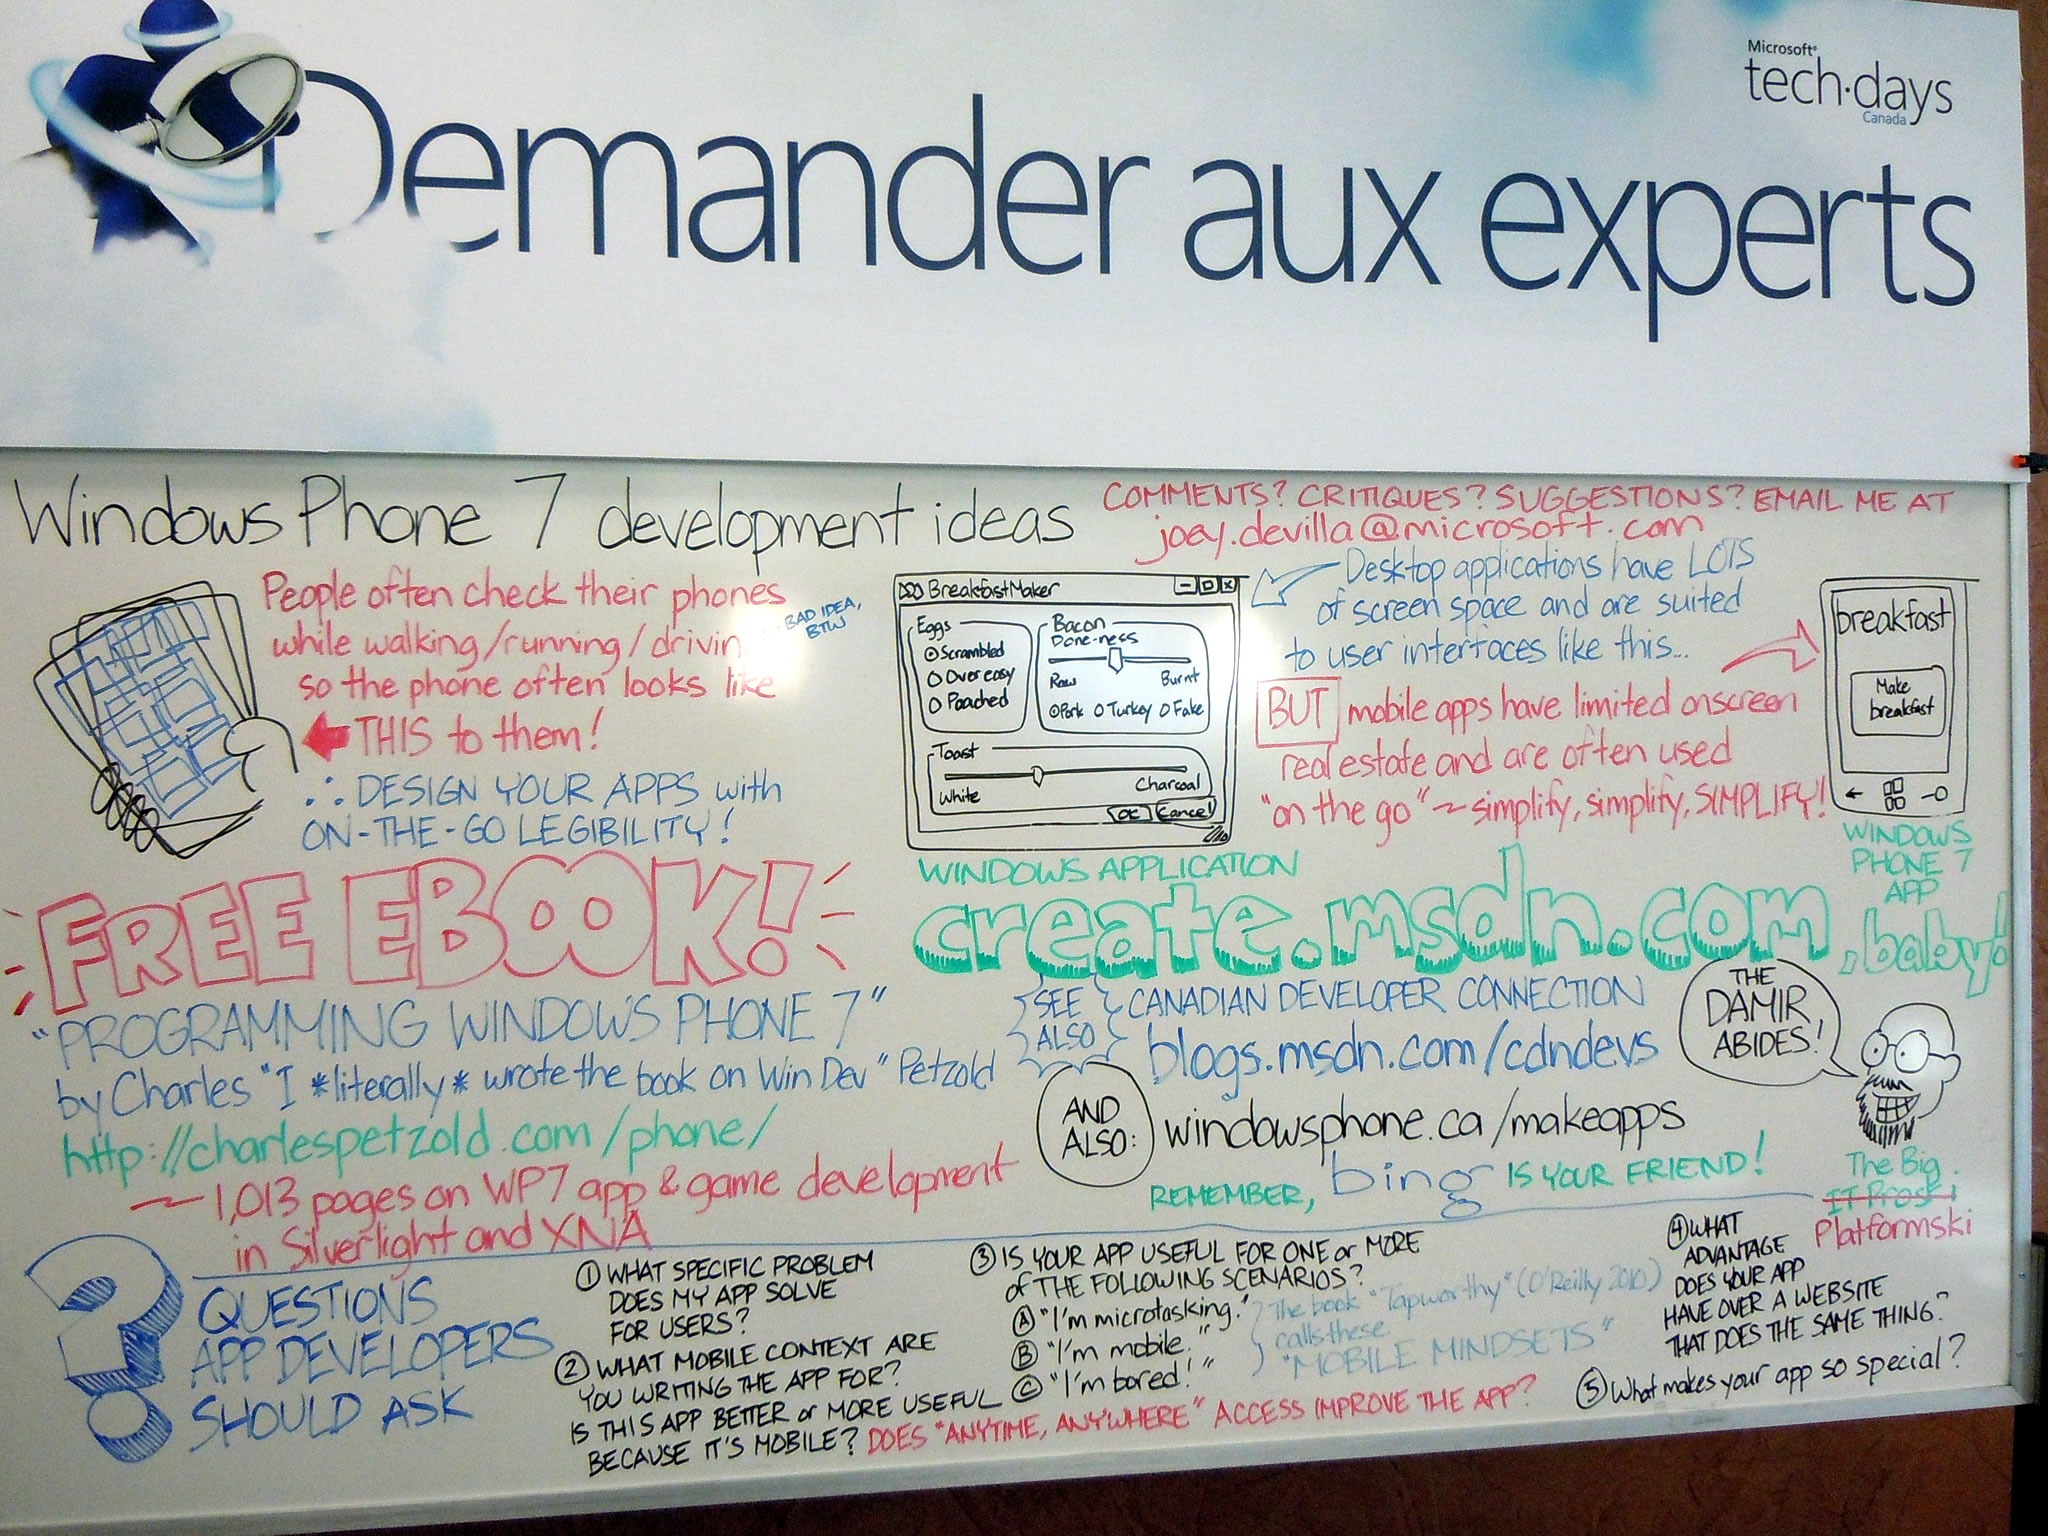 Microsoft®
tech·days
Canada
Demander aux experts
Windows Phone 7 development ideas
COMMENTS? CRITIQUES? SUGGESTIONS? EMAIL ME AT
joey.devilla@microsoft.com
People often check their phones
while walking/running/drivin
BAD IDEA,
BTW
so the phone often looks like
THIS to them!
∴ DESIGN YOUR APPS with
ON-THE-GO LEGIBILITY!
BreakfastMaker
Eggs
Scrambled
Over easy
Poached
Bacon
Done-ness
Raw Burnt
Pork Turkey Fake
Toast
White Charcoal
OK Cancel
WINDOWS APPLICATION
Desktop applications have LOTS
of screen space and are suited
to user interfaces like this...
BUT mobile apps have limited onscreen
real estate and are often used
"on the go" ~ simplify, simplify, SIMPLIFY!
breakfast
Make
breakfast
WINDOWS
PHONE 7
APP
FREE EBOOK!
"PROGRAMMING WINDOWS PHONE 7"
by Charles "I *literally* wrote the book on Win Dev" Petzold
http://charlespetzold.com/phone/
~ 1,013 pages on WP7 app & game development
in Silverlight and XNA
create.msdn.com, baby!
SEE
ALSO
CANADIAN DEVELOPER CONNECTION
blogs.msdn.com/cdndevs
AND
ALSO:
windowsphone.ca/makeapps
REMEMBER, bing IS YOUR FRIEND!
THE
DAMIR
ABIDES!
The Big
IT Proski
Platformski
?
QUESTIONS
APP DEVELOPERS
SHOULD ASK
① WHAT SPECIFIC PROBLEM
DOES MY APP SOLVE
FOR USERS?
② WHAT MOBILE CONTEXT ARE
YOU WRITING THE APP FOR?
IS THIS APP BETTER or MORE USEFUL
BECAUSE IT'S MOBILE? DOES "ANYTIME, ANYWHERE" ACCESS IMPROVE THE APP?
③ IS YOUR APP USEFUL FOR ONE or MORE
of THE FOLLOWING SCENARIOS?
Ⓐ "I'm microtasking."
Ⓑ "I'm mobile."
Ⓒ "I'm bored!"
The book "Tapworthy" (O'Reilly 2010)
calls these
"MOBILE MINDSETS"
④ WHAT
ADVANTAGE
DOES YOUR APP
HAVE OVER A WEBSITE
THAT DOES THE SAME THING?
⑤ What makes your app so special?